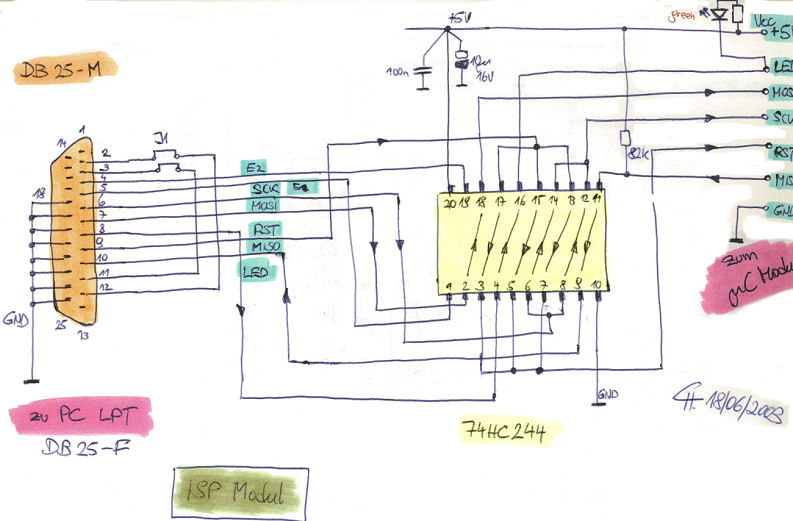 green
+5V
Vcc
+5V
DB 25-M
100n
10u
16V
LED
MOSI
SCK
1
14
J1
2
3
4
5
6
7
8
9
10
11
12
18
25
13
GND
E2
SCK E1
MOSI
RST
MISO
LED
82k
RST
MIS
GND
20 19 18 17 16 15 14 13 12 11
1 2 3 4 5 6 7 8 9 10
zum
µC Modul
GND
18/06/2003
zu PC LPT
DB 25-F
74HC244
ISP Modul